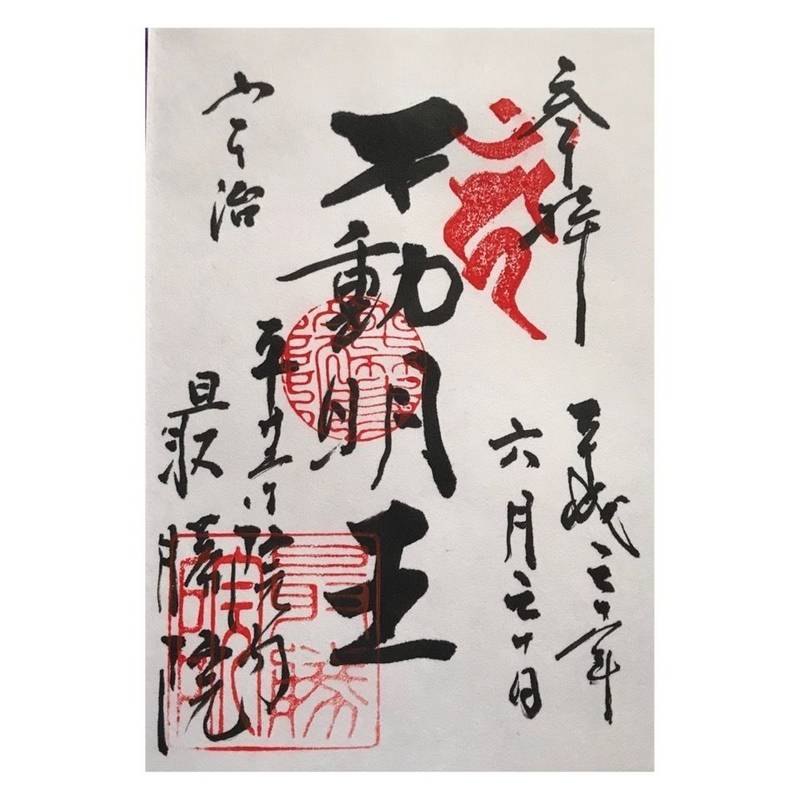 参拝
平成三十年
六月三十日
不動明王
宇治
平等院内
最勝院